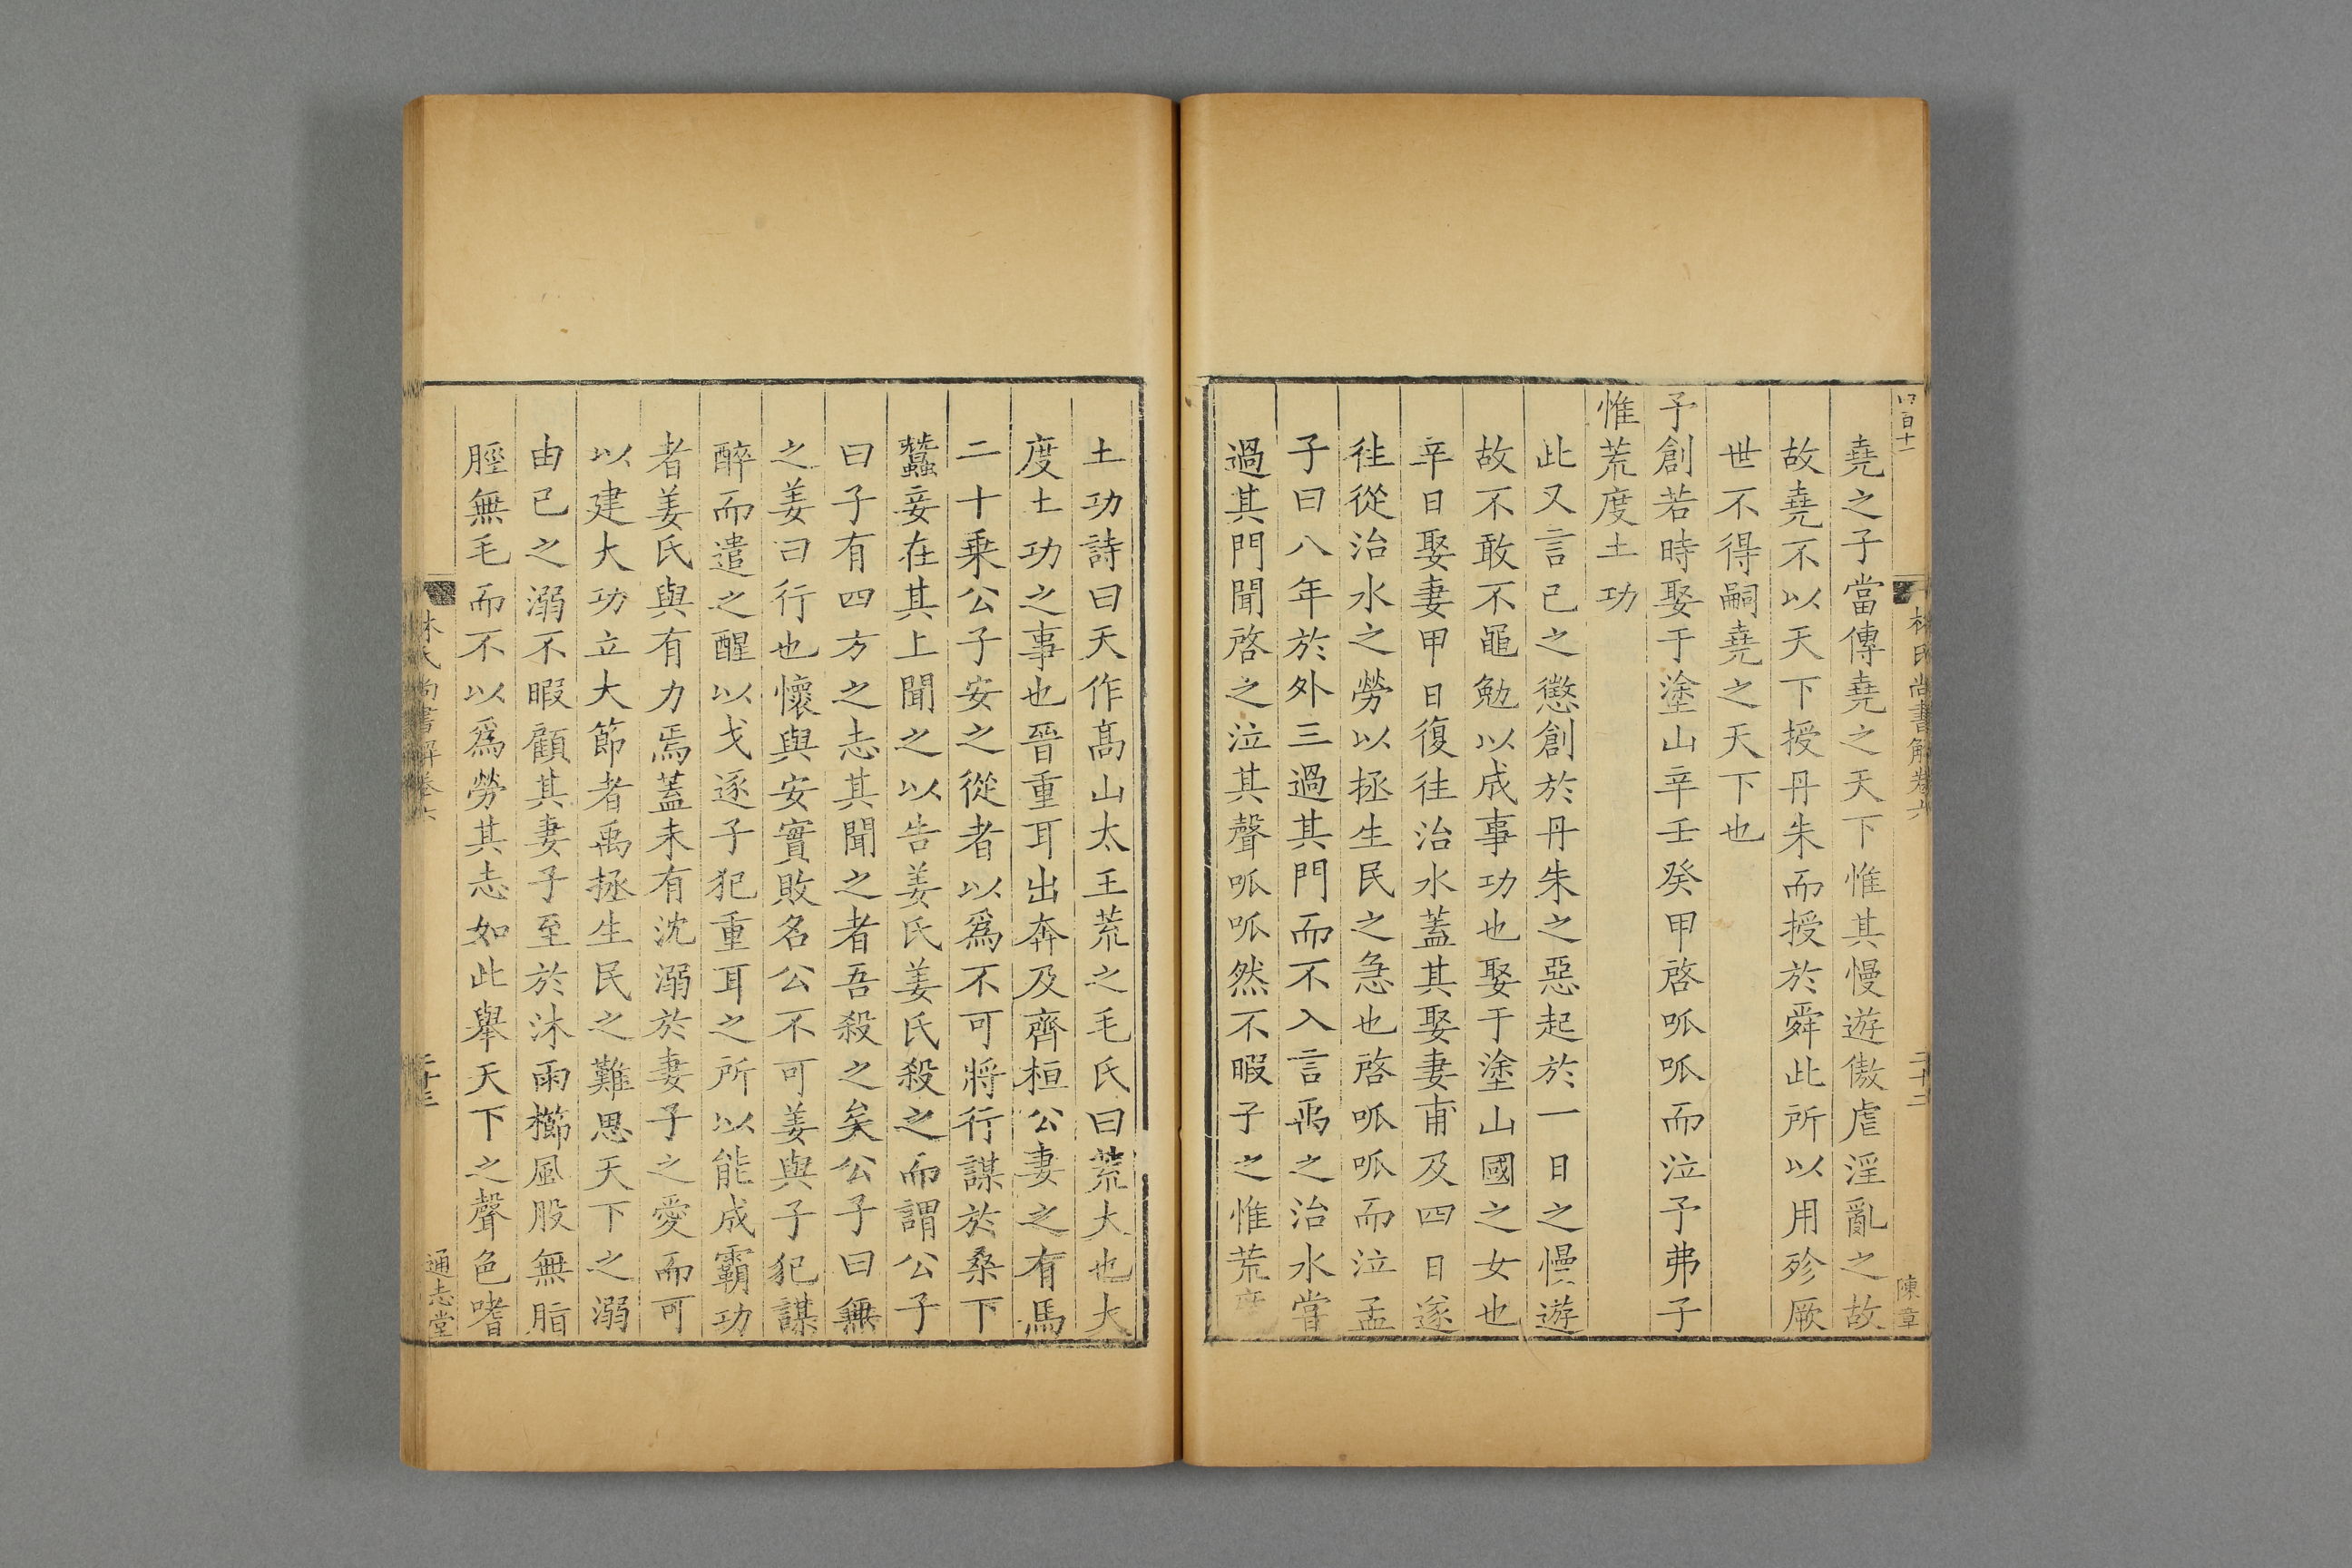 堯之子當傳堯之天下惟其慢遊傲虐淫亂之故
故堯不以天下授丹朱而授於舜此所以用殄厥
世不得嗣堯之天下也
予創若時娶于塗山辛壬癸甲啓呱呱而泣予弗子
惟荒度土功
此又言己之懲創於丹朱之惡起於一日之慢遊
故不敢不黽勉以成事功也娶于塗山國之女也
辛日娶妻甲日復往治水蓋其娶妻甫及四日遂
徃從治水之勞以拯生民之急也啓呱呱而泣孟
子曰八年於外三過其門而不入言禹之治水嘗
過其門聞啓之泣其聲呱呱然不暇子之惟荒度
林氏尚書解卷六
二十二
陳章
土功詩曰天作高山太王荒之毛氏曰荒大也大
度土功之事也晉重耳出奔及齊桓公妻之有馬
二十乗公子安之從者以爲不可將行謀於桑下
蠶妾在其上聞之以告姜氏姜氏殺之而謂公子
曰子有四方之志其聞之者吾殺之矣公子曰無
之姜曰行也懷與安實敗名公不可姜與子犯謀
醉而遣之醒以戈逐子犯重耳之所以能成霸功
者姜氏與有力焉蓋未有沈溺於妻子之愛而可
以建大功立大節者禹拯生民之難思天下之溺
由己之溺不暇顧其妻子至於沐雨櫛風股無脂
脛無毛而不以爲勞其志如此舉天下之聲色嗜
林氏尚書解卷六
通志堂